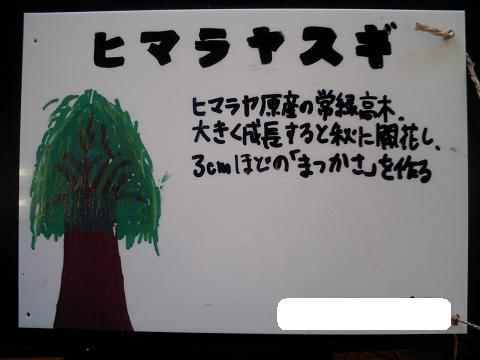 ヒマラヤスギ
ヒマラヤ原産の常緑高木.
大きく成長すると秋に開花し、
3cmほどの「まつかさ」を作る